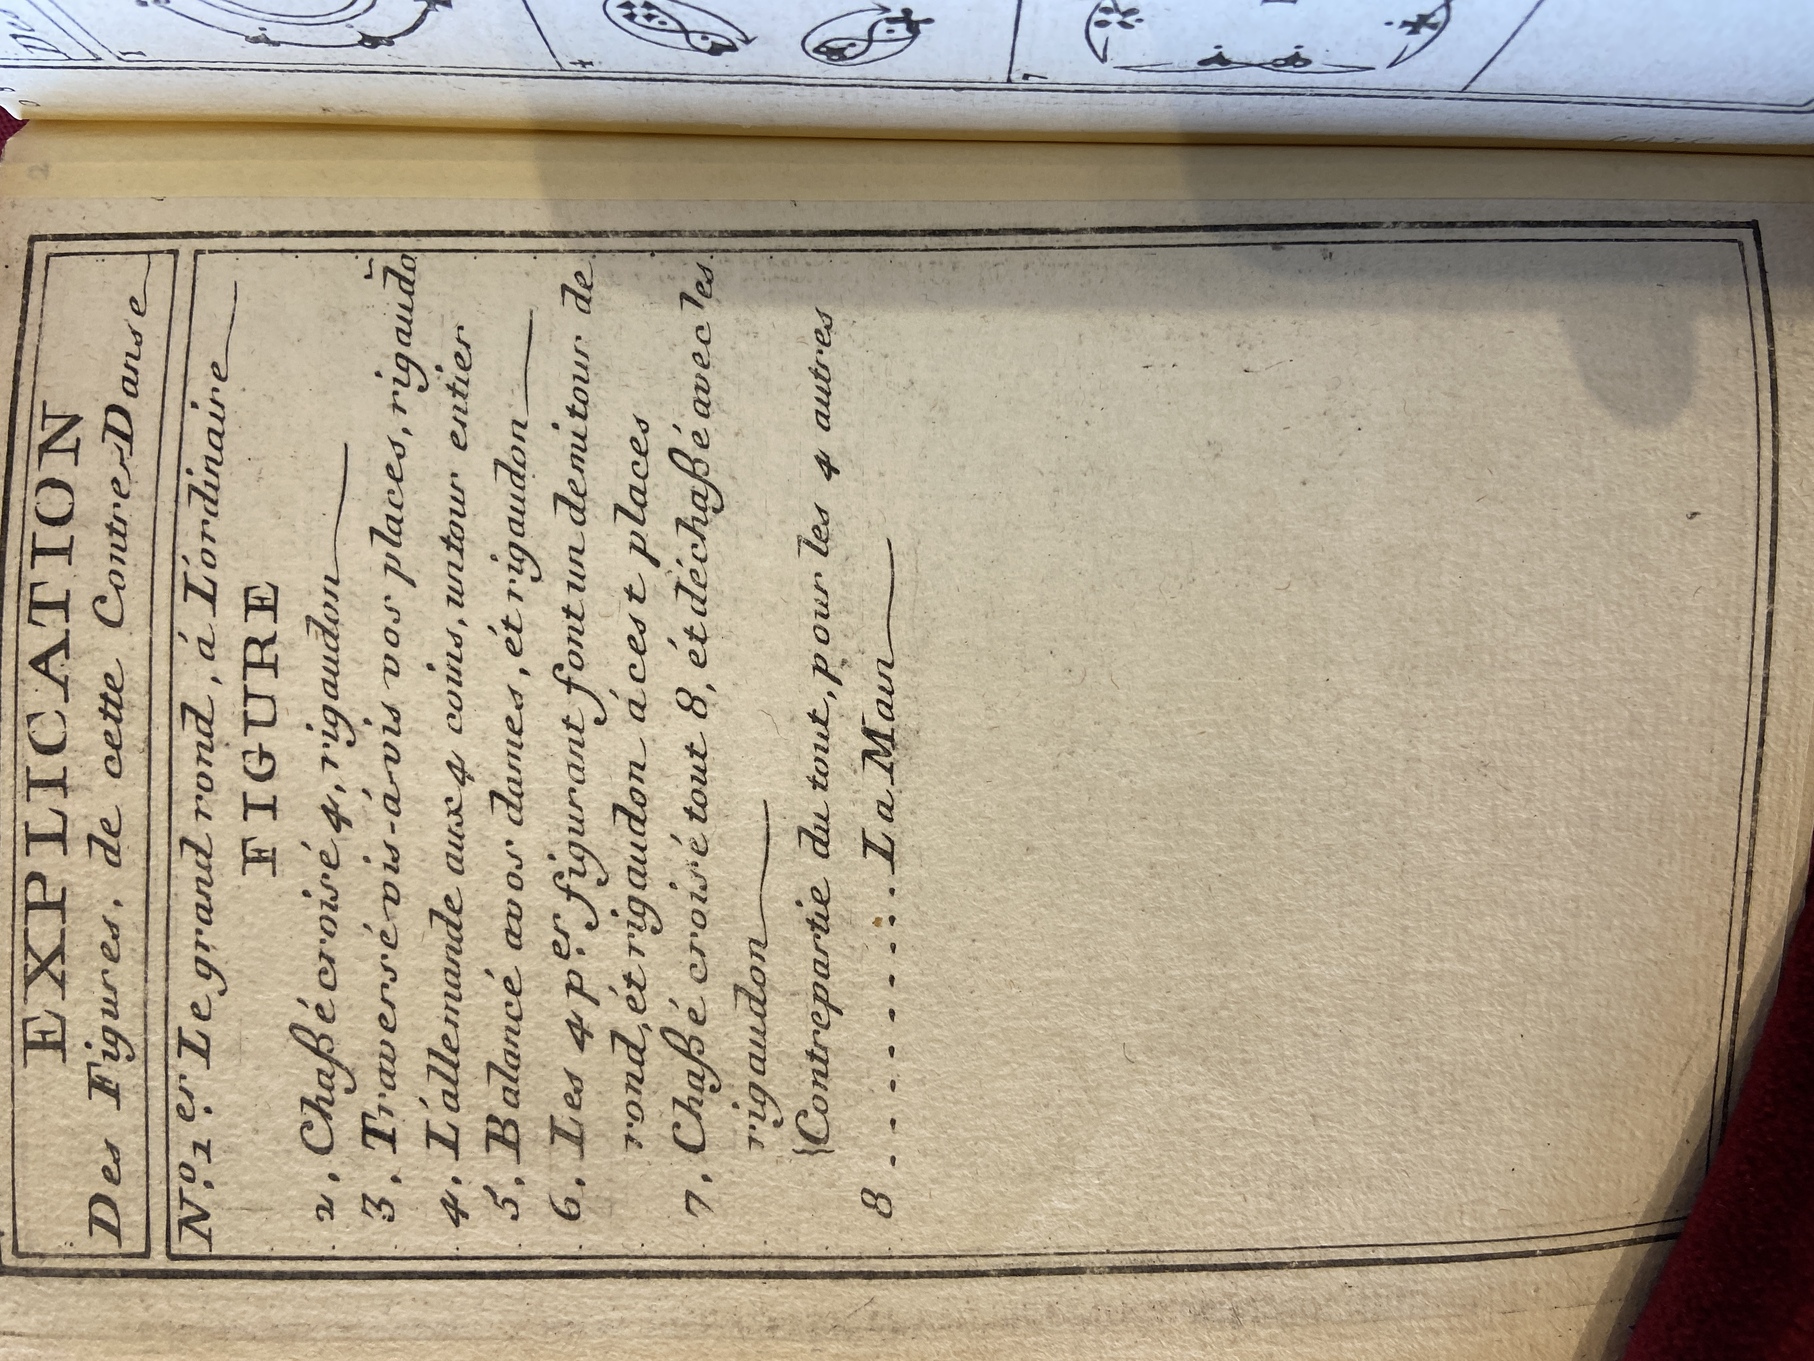 EXPLICATION
Des Figures, de cette Contre-Danse
N.º 1.er Le grand rond, á L'ordinaire
FIGURE
2. Chaßé croisé 4, rigaudon
3. Traversé vis-á-vis vos places, rigaudõ
4. L'allemande aux 4 coins, un tour entier
5. Balancé a vos dames, ét rigaudon
6. Les 4 p.er figurant font un demi tour de
rond, ét rigaudon á ces t places
7. Chaßé croisé tout 8, ét déchaßé avec les
rigaudon
{Contrepartie du tout, pour les 4 autres
8 . . . . . . . . . La Main
1
4
7